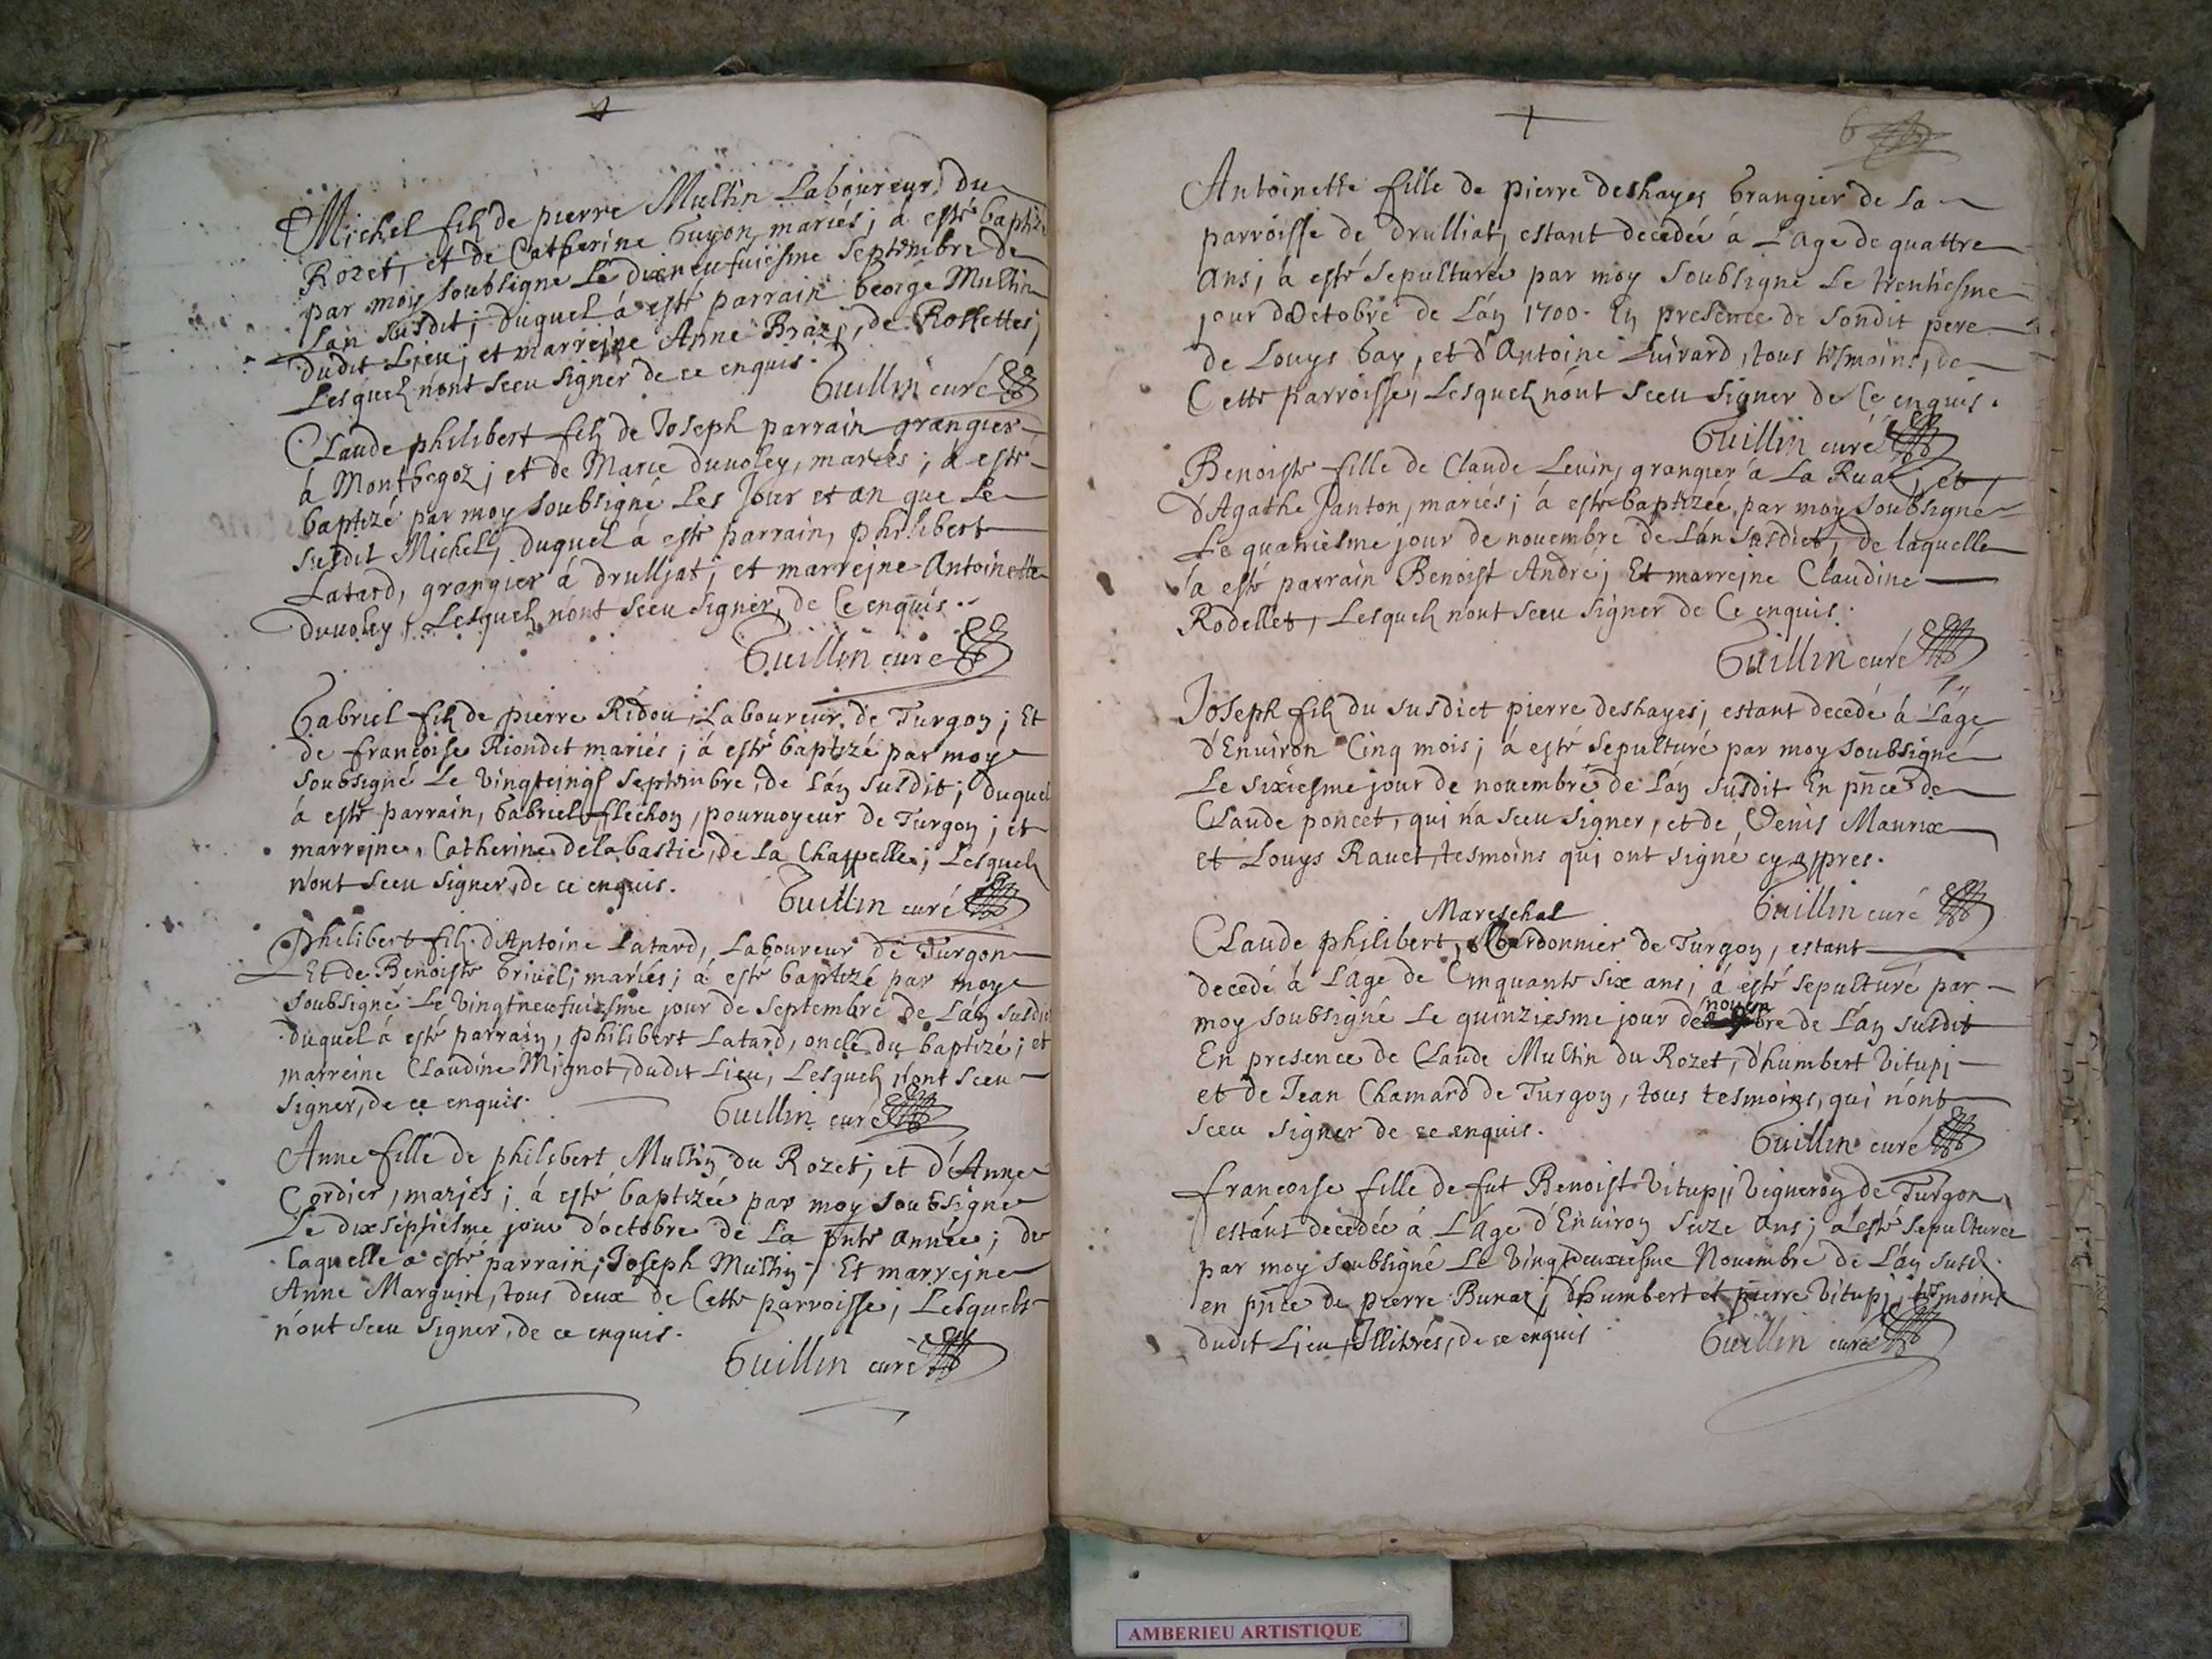 Michel filz de pierre Multin Laboureur du
Rozet, et de Catherine Guyon mariés; á esté baptizé
par moy soubsigné Le dixneufuiesme Septembre de
Lán susdit; duquel á esté parrain George Multin
dudit Lieu; et marrejne Anne Braz, de Rossettes;
Lesquelz nónt sceu signer de ce enquis.
Guillin curé
Claude philibert filz de Joseph parrain grangier
á Montbegoz; et de Marie duuoley, mariés; á esté
baptizé par moy soubsigné Les Jour et an que Le
susdit Michel, duquel á esté parrain, philibert
Latard, grangier á drulljat; et marrejne Antoinette
duuoley, Lesquelz nónt sceu signer, de Ce enquis.
Guillin curé
Gabriel filz de pierre Ridou, Laboureur de Turgon; Et
de francoise Riondet mariés; á esté baptizé par moy
soubsigné Le vingtcinq septembre, de Lán susdit; duquel
á esté parrain, Gabriel flechon, pouruoyeur de Turgon; et
marrejne, Catherine delabastie, de La Chappelle; Lesquelz
nónt sceu signer, de ce enquis.
Guillin curé
Philibert filz dAntoine Latard, Laboureur de Turgon
Et de Benoiste Griuel; mariés; á esté baptizé par moy
soubsigné Le vingtneufuiesme jour de septembre de Lán susdit
duquel á esté parrain, philibert Latard, oncle du baptizé; et
marreine Claudine Mignot, dudit Lieu, Lesquelz nónt sceu
signer, de ce enquis.
Guillin curé
Anne fille de philibert Multin du Rozet; et d'Anne
Cordier, marjés; á esté baptizée par moy soubsigné
Le dixseptiesme jour d'octobre de La pnte année; de
laquelle a esté parrain, Joseph Multin; Et marrejne
Anne Marguin, tous deux de Cette parroisse; Lesquels
nónt sceu signer, de ce enquis.
Guillin curé
6
Antoinette fille de pierre deshayes Grangier de La
parroisse de drulliat, estant decedée á Láge de quattre
Ans; á esté sepulturée par moy soubsigné Le trentiesme
jour dOctobre de Lán 1700. En presence de sondit pere
de Louys Gay, et d'Antoine Luirard, tous tesmoins, de
Cette parroisse, Lesquelz nónt sceu signer de Ce enquis.
Guillin curé
Benoiste fille de Claude Leuin, grangier á La Rua; et
d'Agathe Janton, mariés; á esté baptizée par moy soubsigné
Le quatriesme jour de nouembre de Lán susdict, de laquelle
a esté parrain Benoist André; Et marrejne Claudine
Rodellet, Lesquelz nont sceu signer de Ce enquis.
Guillin curé
Joseph filz du susdict pierre deshayes; estant decedé á Láge
d'Enuiron Cinq mois; á esté sepulturé par moy soubsigné
Le sixiesme jour de nouembre de Lán susdit En pnce de
Claude poncet, qui ná sceu signer, et de Denis Maurix
et Louys Rauet, tesmoins qui ont signé cy appres.
Guillin curé
Mareschal
Claude philibert, de Turgon, estant
decedé á Láge de Cinquante six ans; á esté sepulturé par
moy soubsigné Le quinziesme jour de nouembre de Lán susdit
En presence de Claude Multin du Rozet, d'humbert Vitupj
et de Jean Chamard de Turgon, tous tesmoins, qui nónt
sceu signer de ce enquis.
Guillin curé
francoise fille de fut Benoist Vitupj, Vigneron de Turgon,
estánt decedée á LÁge d'Enuiron seize Ans; á esté sepulturée
par moy soubsigné Le vingtdeuxiesme Nouembre de Lán susd.
en pnce de pierre Bunaz; d'humbert et pierre Vitupj; tesmoins
dudit Lieu, Illitrés, de ce enquis
Guillin curé
AMBERIEU ARTISTIQUE